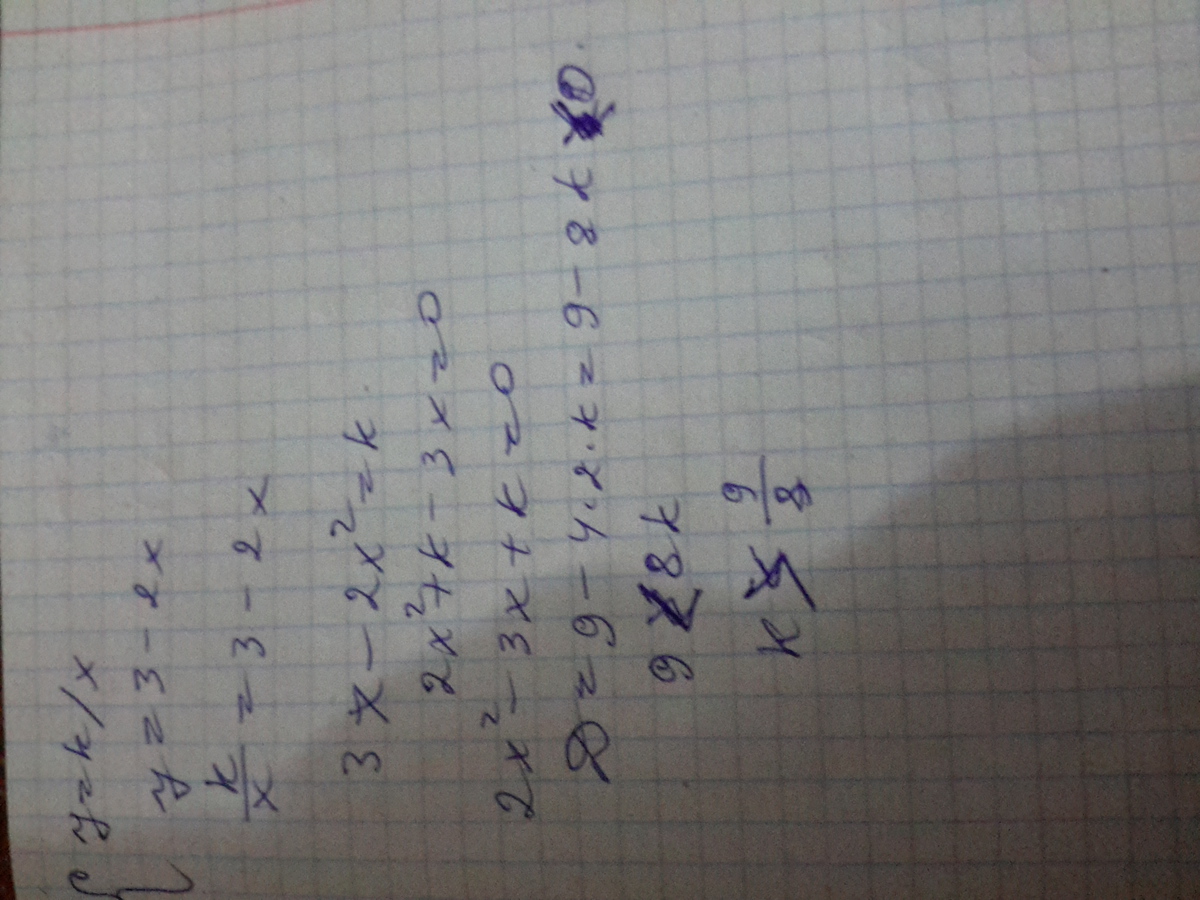 y=k/x
y=3-2x
k/x=3-2x
3x-2x²=k
2x²+k-3x=0
2x²-3x+k=0
D=9-4·2·k=9-8k 0.
9 8k
k 9/8